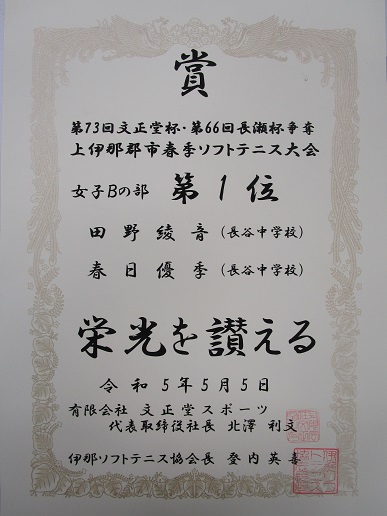 賞
第73回文正堂杯・第66回長瀬杯争奪
上伊那郡市春季ソフトテニス大会
女子Bの部 第1位
田野綾音(長谷中学校)
春日優季(長谷中学校)
栄光を讃える
令和5年5月5日
有限会社 文正堂スポーツ
代表取締役社長 北澤利文
伊那ソフトテニス協会長 登内英喜